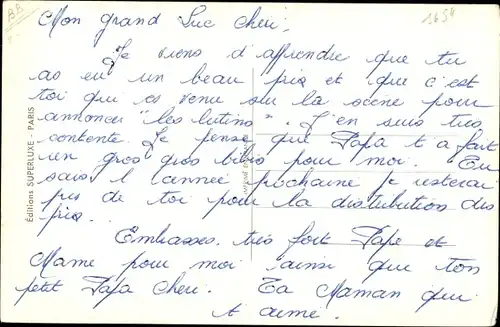 BB
1654
Mon grand Luc cheri,
Je viens d'apprendre que tu
as eu un beau prix et que c'est
toi qui es venu sur la scène pour
annoncer "les lutins". J'en suis très
contente. Je pense que Papa t'a fait
un gros gros bibis pour moi. Tu
sais l'année prochaine je resterai
près de toi pour la distribution des
prix.
Embrasses très fort Pape et
Mame pour moi ainsi que ton
petit Papa Cheri. Ta Maman qui
t'aime.
Éditions SUPERLUXE - PARIS